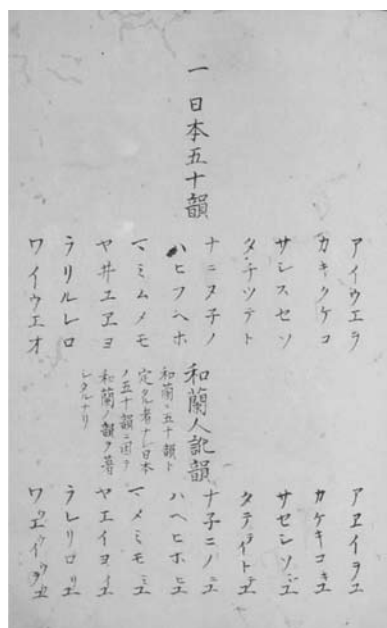 一 日本五十韻
アイウエヲ
カキクケコ
サシスセソ
タチツテト
ナニヌ子ノ
ハヒフヘホ
マミムメモ
ヤ井ユヱヨ
ラリルレロ
ワイウエオ
和蘭人訛韻
和蘭ニ五十韻ト
定タル者ナシ日本
ノ五十韻ニ因テ
和蘭ノ韻ヲ著
レタルナリ
アヱイヲユ
カケキコキユ
サセシソシユ
タテ
ナ子ニノニユ
ハヘヒホヒユ
マメミモミユ
ヤエイヨイユ
ラレリロリユ